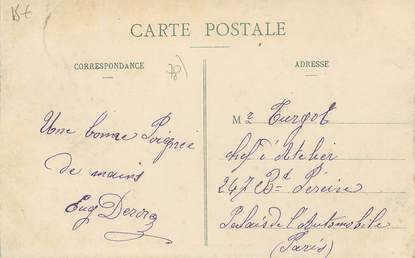 CARTE POSTALE
CORRESPONDANCE
ADRESSE
78)
Une bonne Poignée
de mains
Eug
Mr Turgot
chef d'Atelier
247 Bd Péreire
Palais de l'Automobile
(Paris)